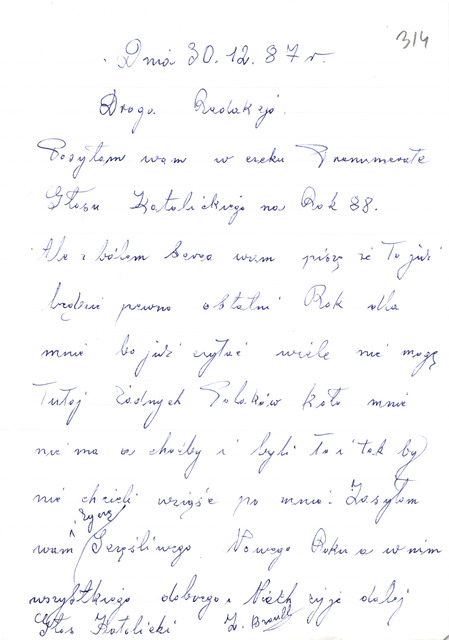 314
Dnia 30.12.87 r.
Droga Redakcjo.
Posyłam wam w czeku Prenumerate
Głosu Katolickiego na Rok 88.
Ale z bólem serca wam piszę że To już
będzie pewno ostatni Rok dla
mnie bo już czytać wiele nie mogę
Tutaj żadnych Polaków koło mnie
nie ma a choćby i byli to i tak by
nie chcieli wziąść po mnie. Zasyłam
życzę
wam Szęśliwego Nowego Roku a w nim
wszystkiego dobrego. Niech żyje dalej
Głos Katolicki Z.